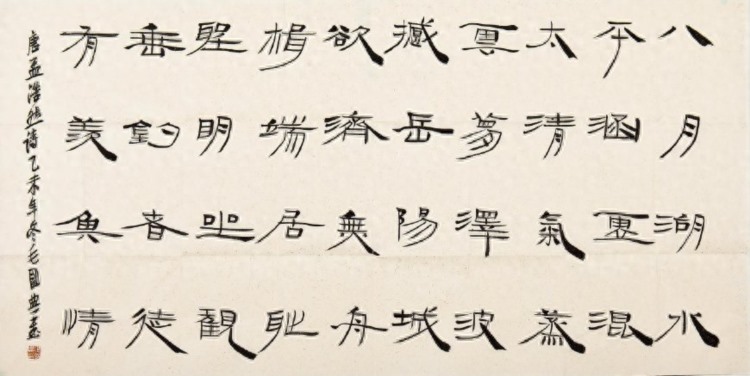 八月湖水
平涵虛混
太清氣蒸
雲夢澤波
撼岳陽城
欲濟無舟
楫端居耻
聖明坐觀
垂釣者徒
有羨魚情
唐孟浩然詩乙未年冬毛國典書